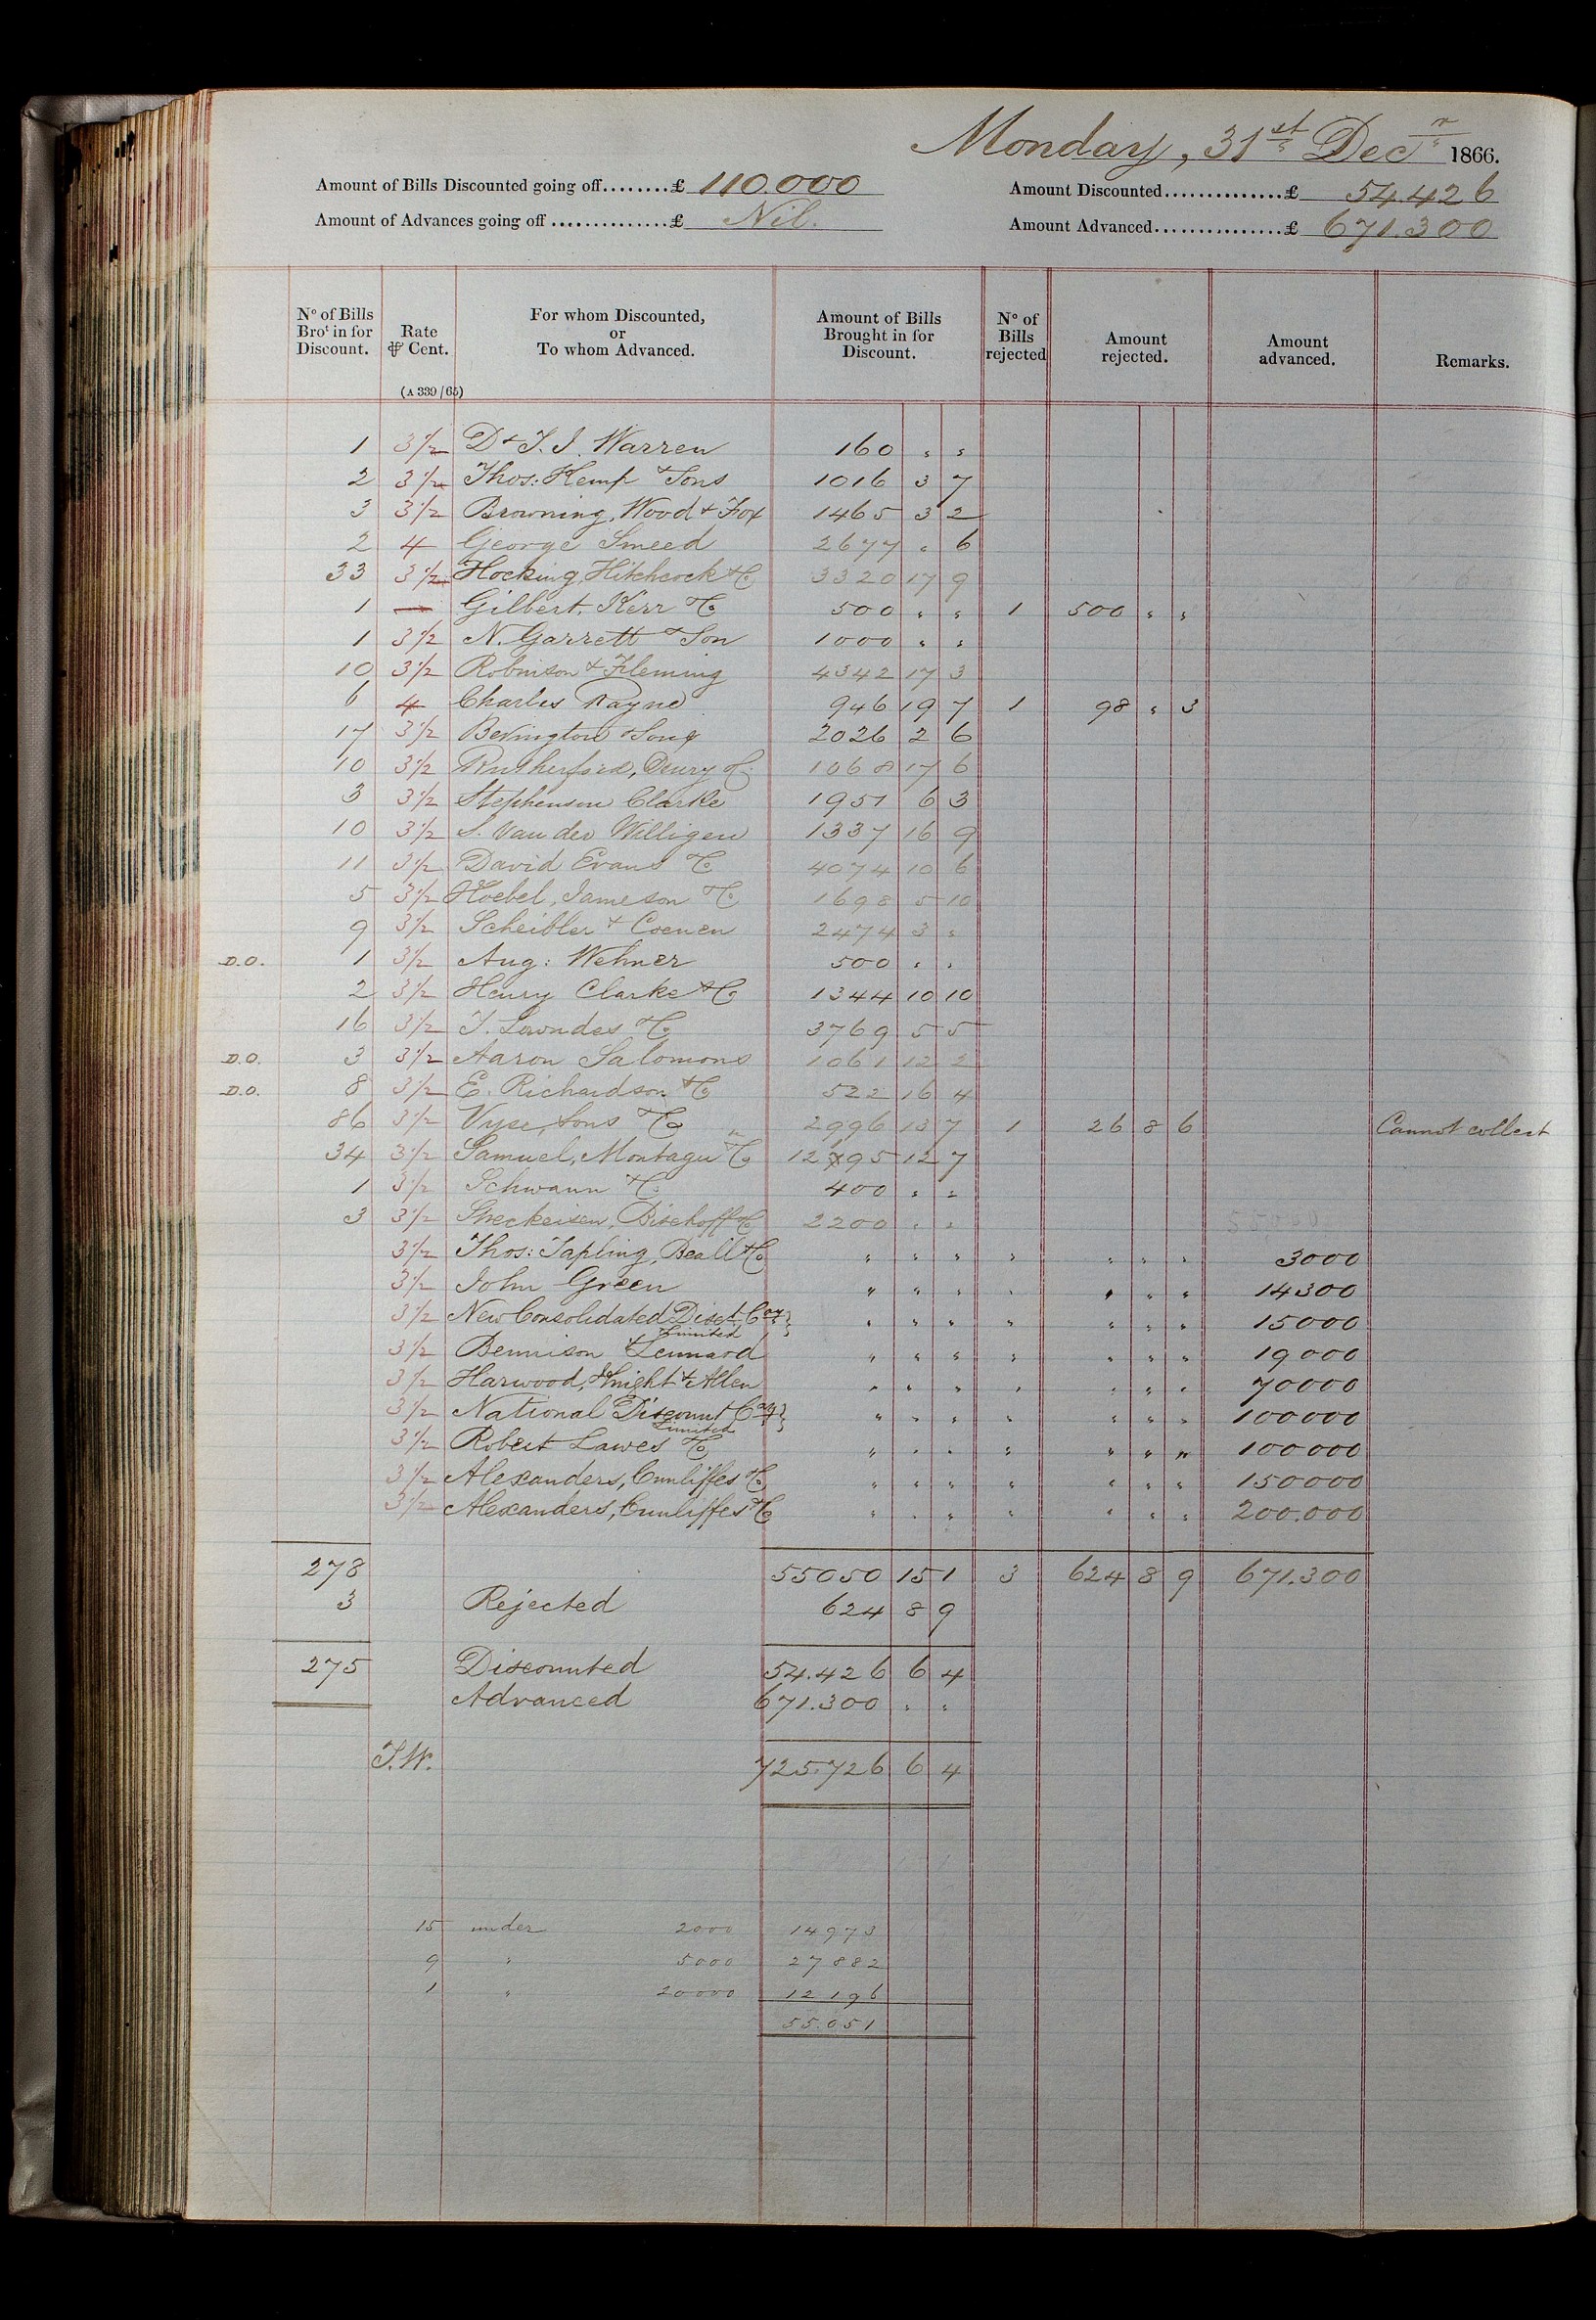 Monday, 31st Decr 1866.
Amount of Bills Discounted going off........£ 110.000 Amount Discounted..............£ 54.426
Amount of Advances going off ..............£ Nil. Amount Advanced................£ 671.300
No of Bills Brot in for Discount. Rate ⅌ Cent. For whom Discounted, or To whom Advanced. Amount of Bills Brought in for Discount. No of Bills rejected Amount rejected. Amount advanced. Remarks.
(A 339/65)
1 3½ D & T. J. Warren 160 " "
2 3½ Thos: Kemp & Sons 1016 3 7
3 3½ Browning, Wood & Fox 1465 3 2
2 4 George Smeed 2677 " 6
33 3½ Hocking, Hitchcock & Co 3320 17 9
1 — Gilbert, Kerr & Co 500 " " 1 500 " "
1 3½ N. Garrett & Son 1000 " "
10 3½ Robinson & Fleming 4342 17 3
6 4 Charles Rayne 946 19 7 1 98 " 3
17 3½ Bevington & Sons 2026 2 6
10 3½ Rutherford, Drury & Co 1068 17 6
3 3½ Stephenson Clarke 1951 6 3
10 3½ S. Van der Willigen 1337 16 9
11 3½ David Evans & Co 4074 10 6
5 3½ Hoebel, Jameson & Co 1698 5 10
9 3½ Scheibler & Coenen 2474 3 "
D.O. 1 3½ Aug: Wehner 500 " "
2 3½ Henry Clarke & Co 1344 10 10
16 3½ T. Lowndes & Co 3769 5 5
D.O. 3 3½ Aaron Salomons 1061 12 2
D.O. 8 3½ E. Richardson & Co 522 16 4
86 3½ Vyse, Sons & Co 2996 13 7 1 26 8 6 Cannot collect
34 3½ Samuel, Montagu & Co 12195 12 7
1 3½ Schwann & Co 400 " "
3 3½ Speckeisen, Bischoff & Co 2200 " "
3½ Thos: Tapling, Beall & Co " " " " " " " 3000
3½ John Green " " " " " " " 14300
3½ New Consolidated Disct Coy Limited " " " " " " " 15000
3½ Bennison & Lennard " " " " " " " 19000
3½ Harwood, Knight & Allen " " " " " " " 70000
3½ National Discount Coy Limited " " " " " " " 100000
3½ Robert Lawes & Co " " " " " " " 100000
3½ Alexanders, Cunliffes & Co " " " " " " " 150000
3½ Alexanders, Cunliffes & Co " " " " " " " 200.000
278 55050 15 1 3 624 8 9 671.300
3 Rejected 624 8 9
275 Discounted 54.426 6 4
Advanced 671.300 " "
T.W. 725.726 6 4
15 under 2000 14973
9 " 5000 27882
1 " 20000 12196
55.051